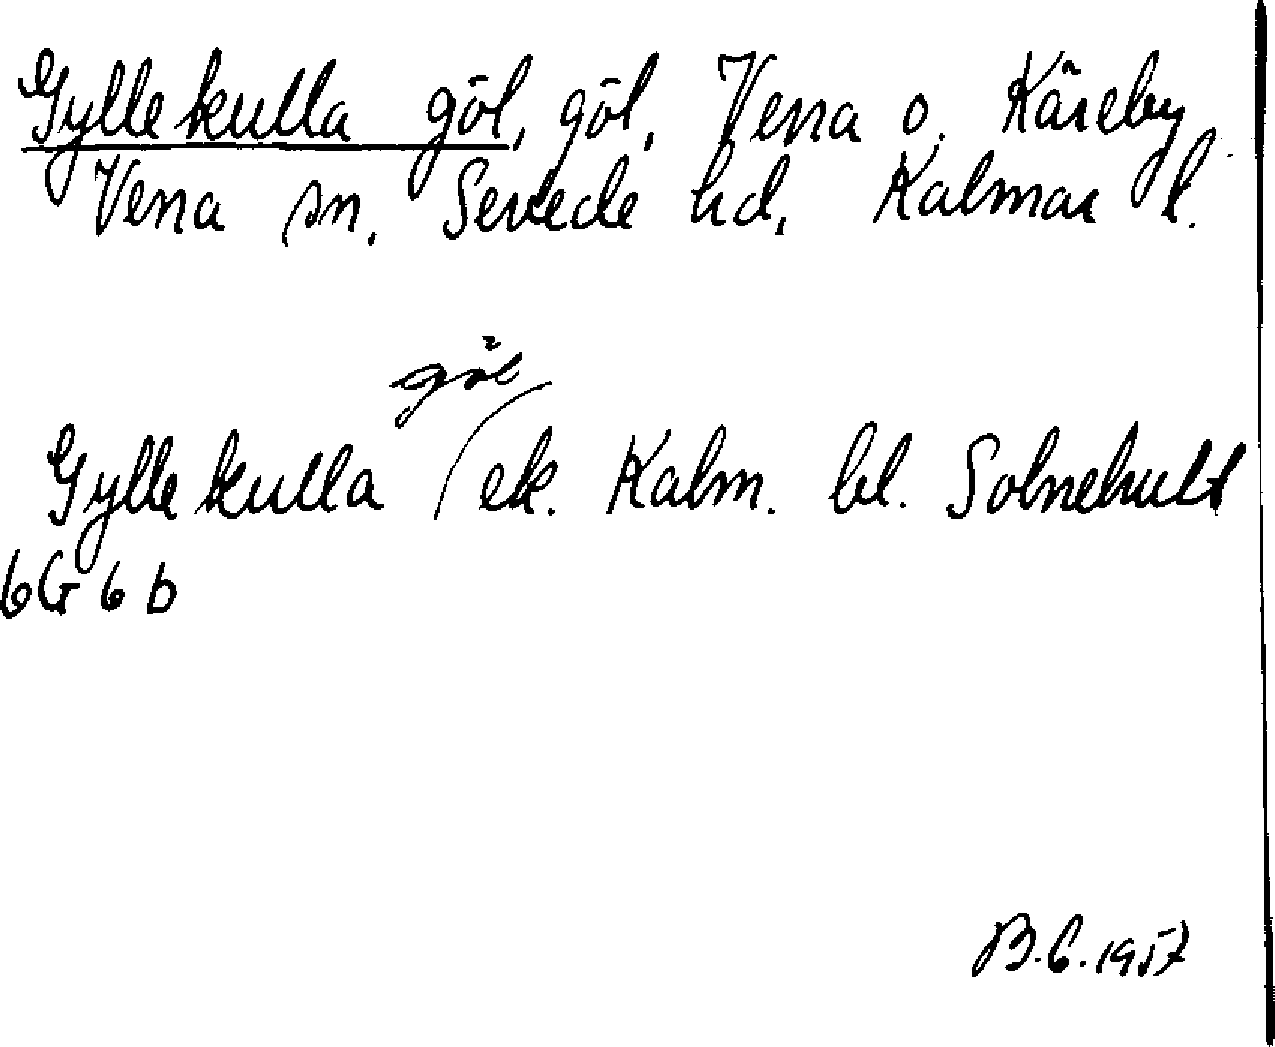 Gyllekulla göl, göl, Vena o. Käreby
Vena sn. Sevede hd, Kalmar l.
göl
Gyllekulla (ek. Kalm. bl. Solnehult
6G 6 b
B.C. 1957